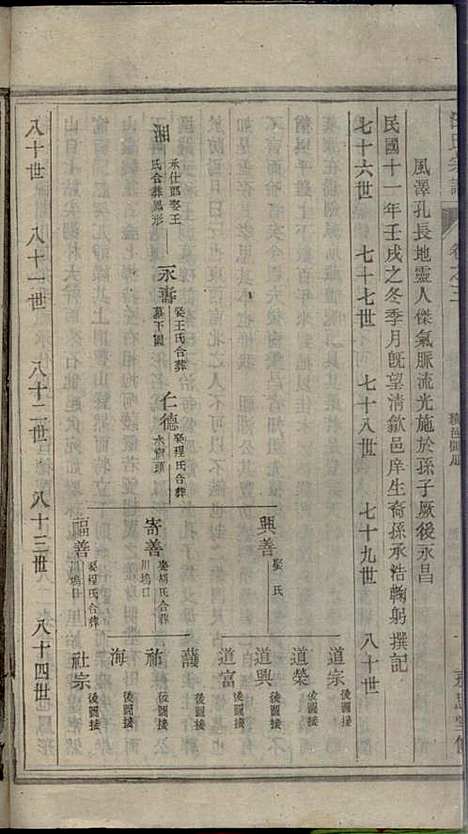 風澤孔長地靈人傑氣脈流光施於孫子厥後永昌
民國十一年壬戌之冬季月既望清歙邑庠生裔孫承浩鞠躬撰記
七十六世 七十七世 七十八世 七十九世 八十世
承仕郎娶王
氏合葬鳳形
永壽
娶王氏合葬
墓下園
仁德
娶程氏合葬
水窟頭
興善
娶 氏
道宗
後圖接
道榮
後圖接
道興
後圖接
道富
後圖接
寄善
娶胡氏合葬
川塢口
護
後圖接
祐
後圖接
海
後圖接
福善
娶程氏合葬
川塢口
社宗
後圖接
八十世 八十一世 八十二世 八十三世 八十四世